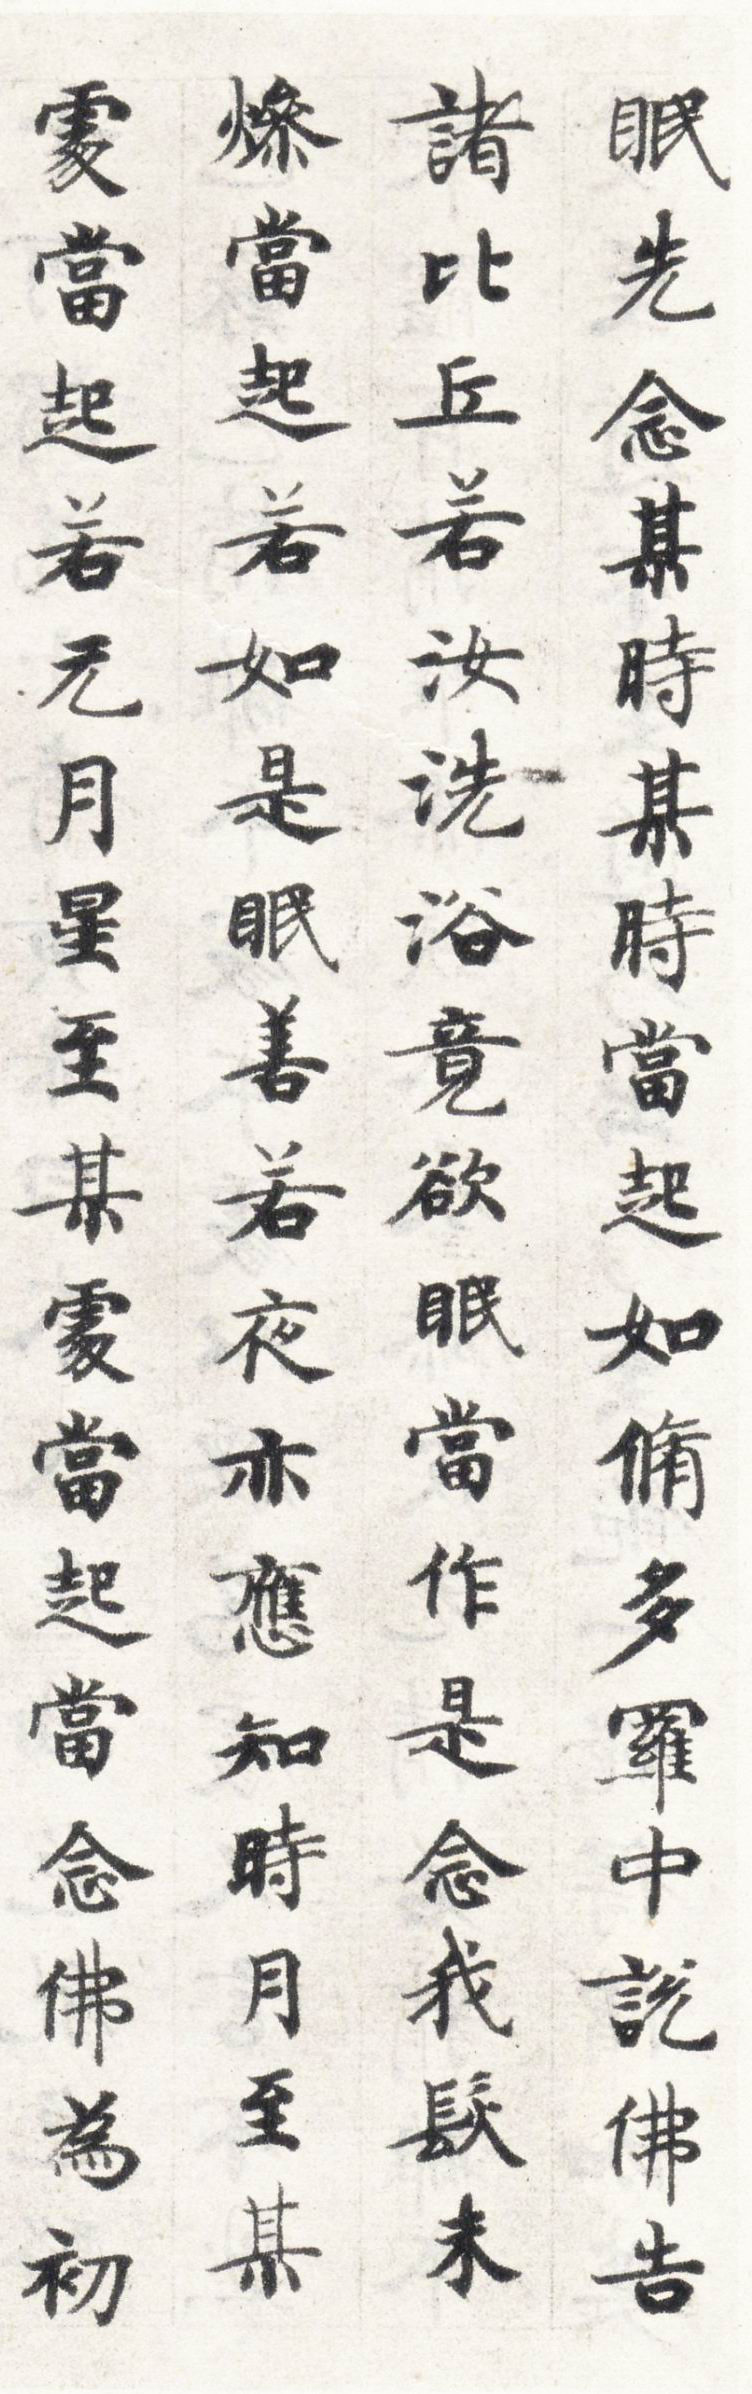 眠先念某時某時當起如脩多羅中說佛告
諸比丘若汝洗浴竟欲眠當作是念我髮未
燥當起若如是眠善若夜亦應知時月至某
處當起若无月星至某處當起當念佛為初